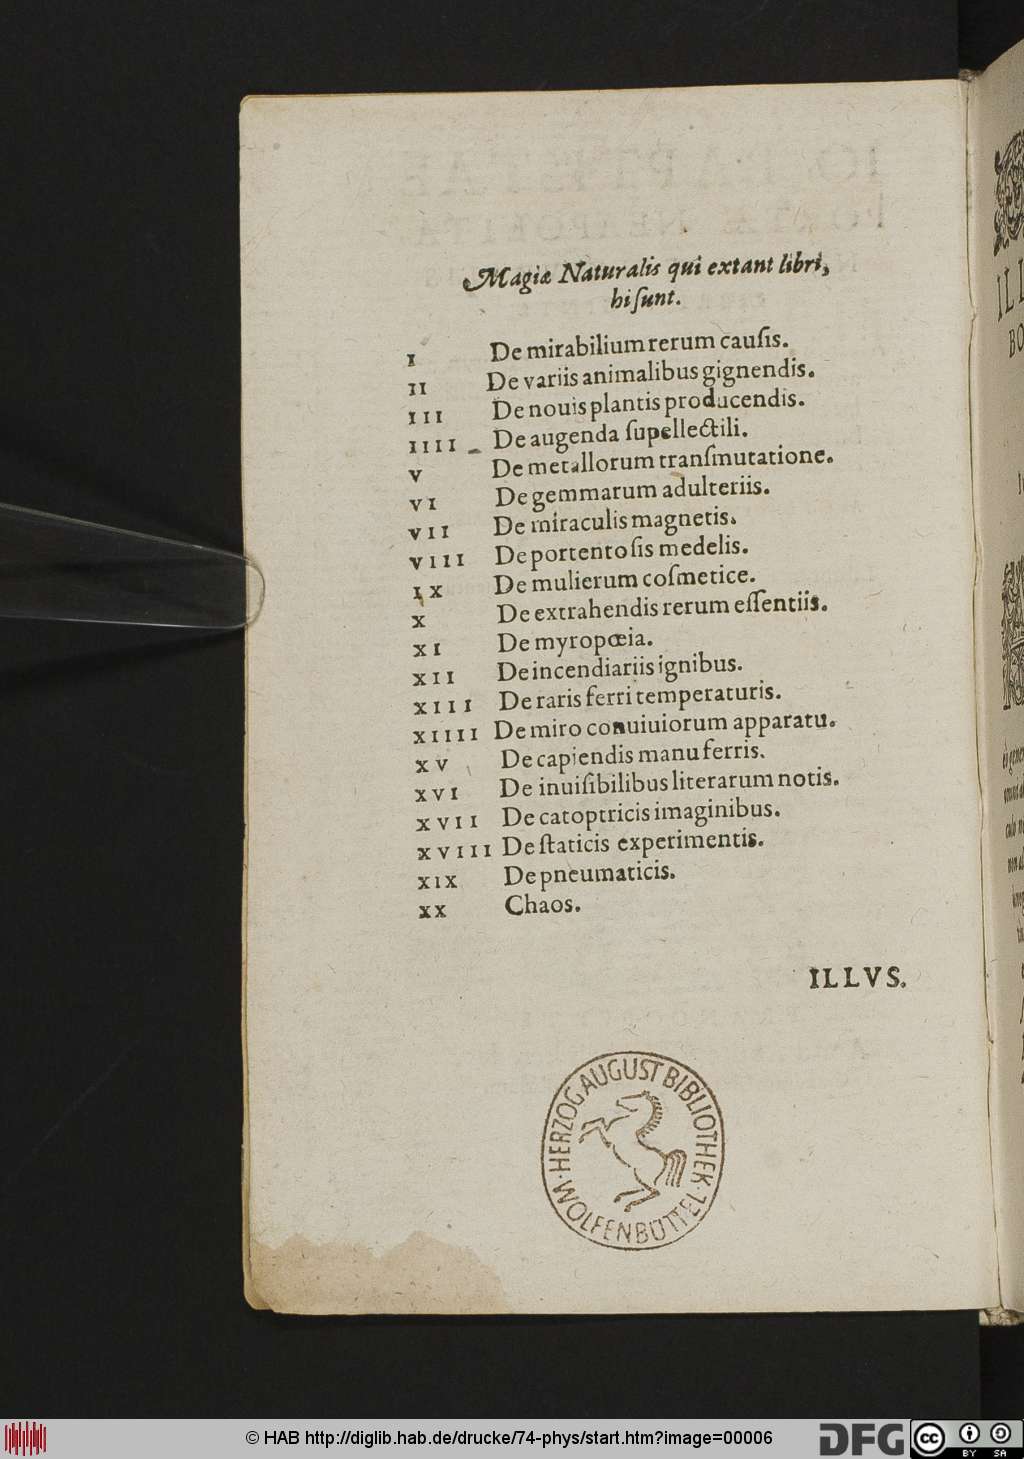 Magiæ Naturalis qui extant libri,
hi ſunt.
I De mirabilium rerum cauſis.
II De variis animalibus gignendis.
III De nouis plantis producendis.
IIII De augenda ſupellectili.
V De metallorum tranſmutatione.
VI De gemmarum adulteriis.
VII De miraculis magnetis.
VIII De portentoſis medelis.
IX De mulierum coſmetice.
X De extrahendis rerum eſſentiis.
XI De myropœia.
XII De incendiariis ignibus.
XIII De raris ferri temperaturis.
XIIII De miro conuiuiorum apparatu.
XV De capiendis manu ferris.
XVI De inuiſibilibus literarum notis.
XVII De catoptricis imaginibus.
XVIII De ſtaticis experimentis.
XIX De pneumaticis.
XX Chaos.
ILLVS.
HERZOG AUGUST BIBLIOTHEK · WOLFENBÜTTEL ·
© HAB http://diglib.hab.de/drucke/74-phys/start.htm?image=00006
DFG
cc BY SA